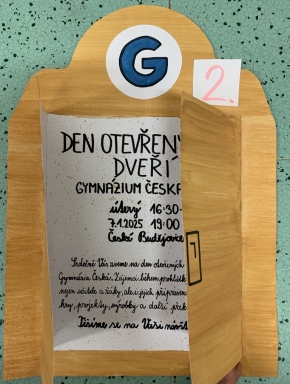 G
2.
DEN OTEVŘENÝ
DVEŘÍ
GYMNÁZIUM ČESKÁ
úterý 16:30-
7.1.2025 19:00
České Budějovice
Srdečně Vás zveme na den otevřených
Gymnázia Česká. Zájemci během prohlídk
nejen učitele a žáky, ale i jejich připraven
hry, projekty, výrobky a další přek
Těšíme se na Vaši návšt